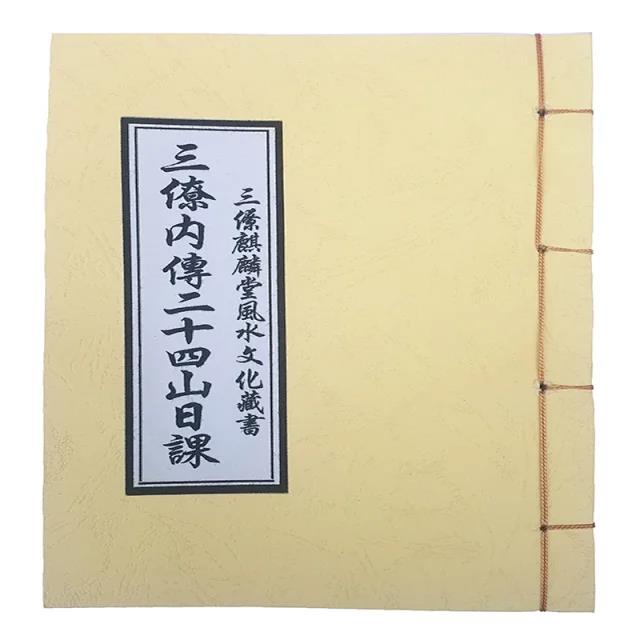 三僚麒麟堂風水文化藏書
三僚内傳二十四山日課